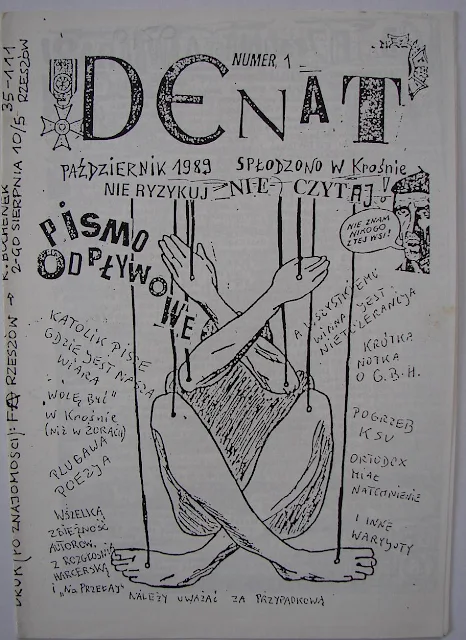 NUMER 1
DENAT
PAŹDZIERNIK 1989 SPŁODZONO W KROŚNIE
NIE RYZYKUJ NIE CZYTAJ!
PISMO
ODPŁYWOWE
NIE ZNAM
NIKOGO
Z TEJ WSI!
KATOLIK PISZE
GDZIE JEST NASZA
WIARA
"WOLĘ BYĆ"
W KROŚNIE
(NIŻ W ŻORACH)
PLUGAWA
POEZJA
WSZELKĄ
ZBIEŻNOŚĆ
AUTORÓW
Z ROZGŁOŚNIĄ
HARCERSKĄ
I "NA PRZEŁAJ"
NALEŻY UWAŻAĆ ZA PRZYPADKOWĄ
A WSZYSTKIEMU
WINNA JEST
NIETOLERANCJA
KRÓTKA
NOTKA
O G.B.H.
POGRZEB
KSU
ORTODOX
MIAŁ
NATCHNIENIE
I INNE
WARYJOTY
DRUK (PO ZNAJOMOŚCI): RZESZÓW → K. BUCHENEK
2-GO SIERPNIA 10/5 35-111
RZESZÓW